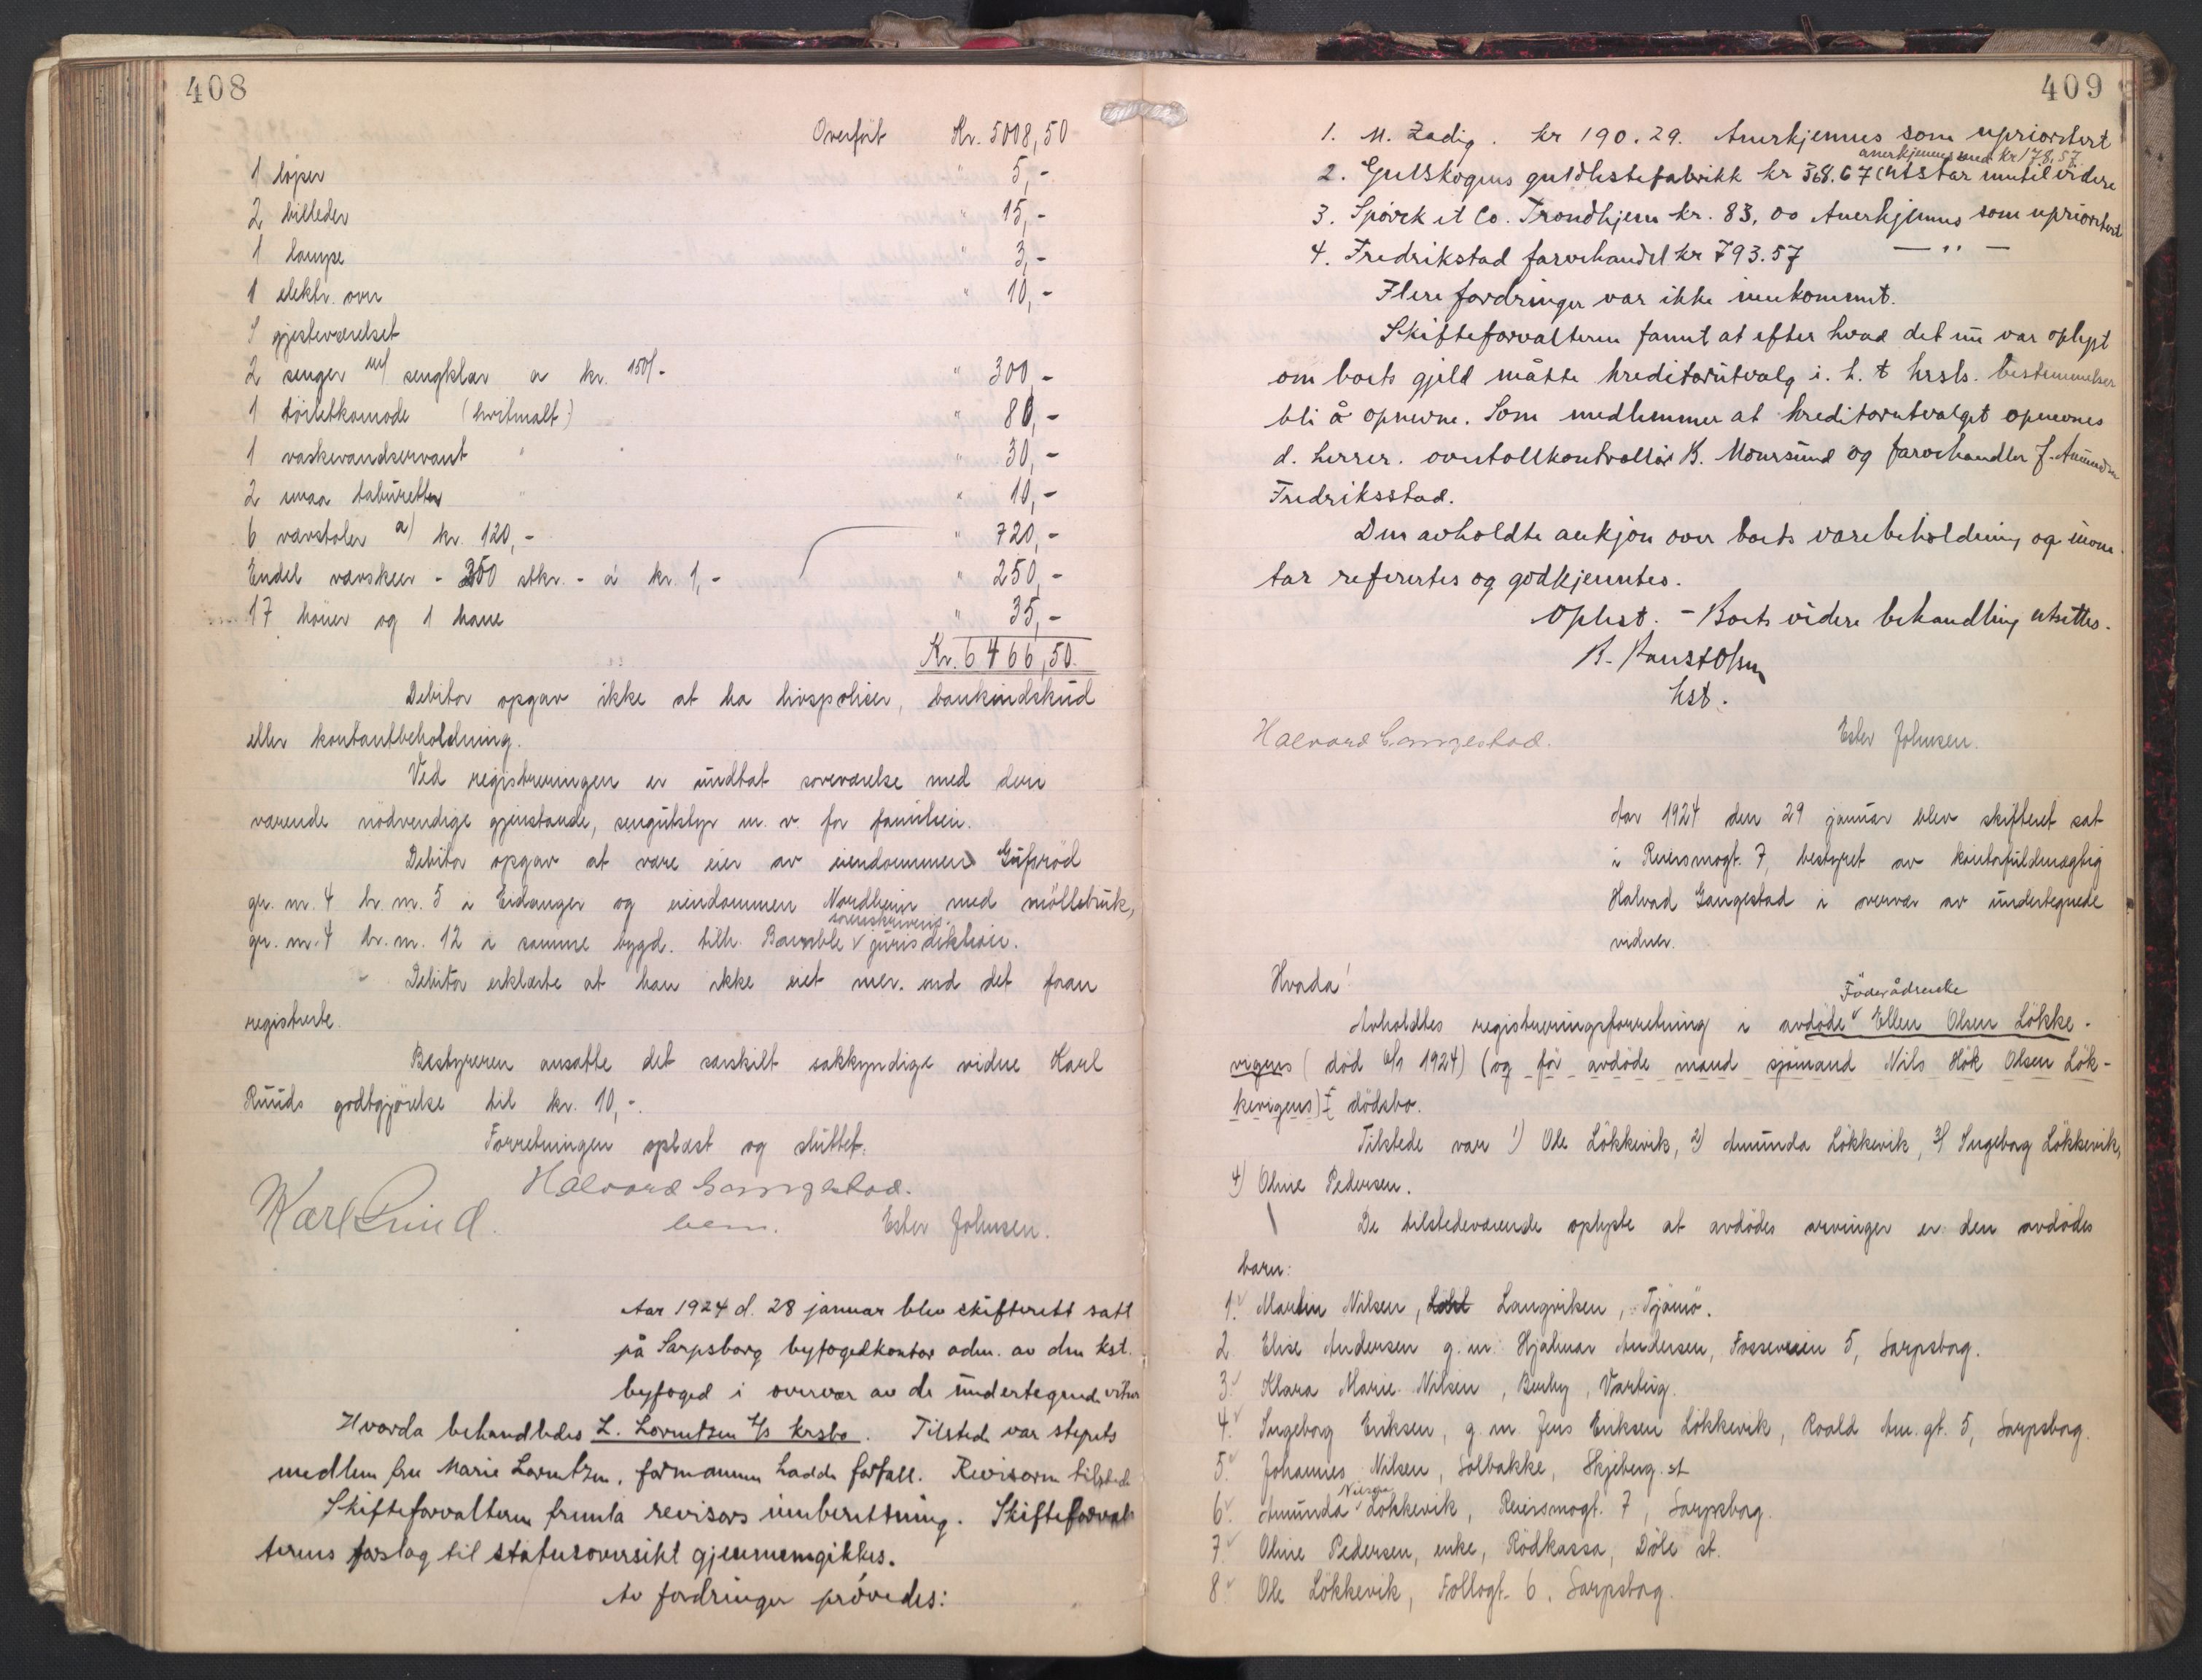 408
Overført Kr. 5008,50
1 løper " 5,-
2 billeder " 15,-
1 lampe " 3,-
1 elektr. ovn " 10,-
I gjesteværelset
2 senger m/ sengklær a kr. 150/- " 300,-
1 toiletkomode (hvitmalt) " 80,-
1 vaskevandservant " " 30,-
2 smaa taburetter " " 10,-
6 vævstoler a) kr. 120,- " 720,-
Endel vævskeer - 250 stkr. - á kr. 1,- " 250,-
17 høner og 1 hane " 35,-
Kr. 6466,50.
Debitor opgav ikke at ha livspoliser, bankindskud
eller kontantbeholdning.
Ved registreringen er undtat soveværelse med deri
værende nødvendige gjenstande, sengutstyr m. v. for familien.
Debitor opgav at være eier av eiendommen Gufsrød
gr. nr. 4 br. nr. 5 i Eidanger og eiendommen Nordheim med møllebruk,
gr. nr. 4 br. nr. 12 i samme bygd. tilh. Bamble sorenskrivers jurisdiktion.
Debitor erklærte at han ikke eiet mer. end det foran
registrerte.
Bestyreren ansatte det særskilt sakkyndige vidne Karl
Ruuds godtgjørelse til kr. 10,-.
Forretningen oplæst og sluttet.
Halvard Gangestad.
Karl Ruud. bem. Ester Johnsen.
Aar 1924 d. 28 januar blev skifterett satt
på Sarpsborg byfogedkontor adm. av den kst.
byfoged i overvær av de undertegnede vitner
Hvorda behandledes L. Lorentzen A/S krsbo. Tilstede var styrets
medlem fru Marie Lorentzen, formannen hadde forfall. Revisoren tilstede
Skifteforvalteren fremla revisors innberetning. Skifteforval-
terens forslag til statusoversikt gjennemgikkes.
Av fordringer prøvedes:
409
1. M. Zadig. kr 190.29. Anerkjennes som uprioritert
anerkjennes med kr 178,57.
2. Gulskogens guldlistefabrikk kr 368.67 (utstår inntil videre
3. Spørck et Co. Trondhjem kr. 83,00 Anerkjennes som uprioritert
4. Fredrikstad farvehandel kr 793.57 — " —
Flere fordringer var ikke innkommet.
Skifteforvalteren fannt at efter hvad det nu var oplyst
om boets gjeld måtte kreditorutvalg i. h. t krsls. bestemmelser
bli å opnevne. Som medlemmer at kreditorutvalget opnevnes
d. herrer. overtollkontrollør B. Moursund og farvehandler J. Amundsen
Fredriksstad.
Den avholdte auksjon over boets varebeholdning og inven-
tar refertes og godkjenntes.
Oplest. - Boets videre behandling utsettes.
kst.
Halvard Gangestad. Ester Johnsen.
Aar 1924 den 29 januar blev skifteret sat
i Reiersmogt. 7, bestyret av kontorfuldmægtig
Halvad Gangestad i overvær av undertegnede
vidner.
Hvorda!
Føderådsenke
Avholdtes registreringsforretning i avdøde Ellen Olsen Løkke-
vigens (død 6/1 1924) (og før avdøde mand sjømand Nils Høk Olsen Løk-
kevigens) dødsbo.
Tilstede var 1) Ole Løkkevik, 2) Amunda Løkkevik, 3) Ingeborg Løkkevik,
4) Oline Pedersen.
De tilstedeværende oplyste at avdødes arvinger er den avdødes
barn:
1. Martin Nilsen, Langviken, Tjømø.
2. Elise Andersen g. m. Hjalmar Andersen, Fosseveien 5, Sarpsborg.
3. Klara Marie Nilsen, Berby, Varteig.
4. Ingeborg Eriksen, g. m. Jens Eriksen Løkkevik, Roald Am. gt. 5, Sarpsborg.
5. Johannes Nilsen, Solbakke, Skjeberg. st
6. Amunda Nilsen Løkkevik, Reiersmogt. 7, Sarpsborg.
7. Oline Pedersen, enke, Rødkassa, Døle st.
8. Ole Løkkevik, Follogt. 6, Sarpsborg.